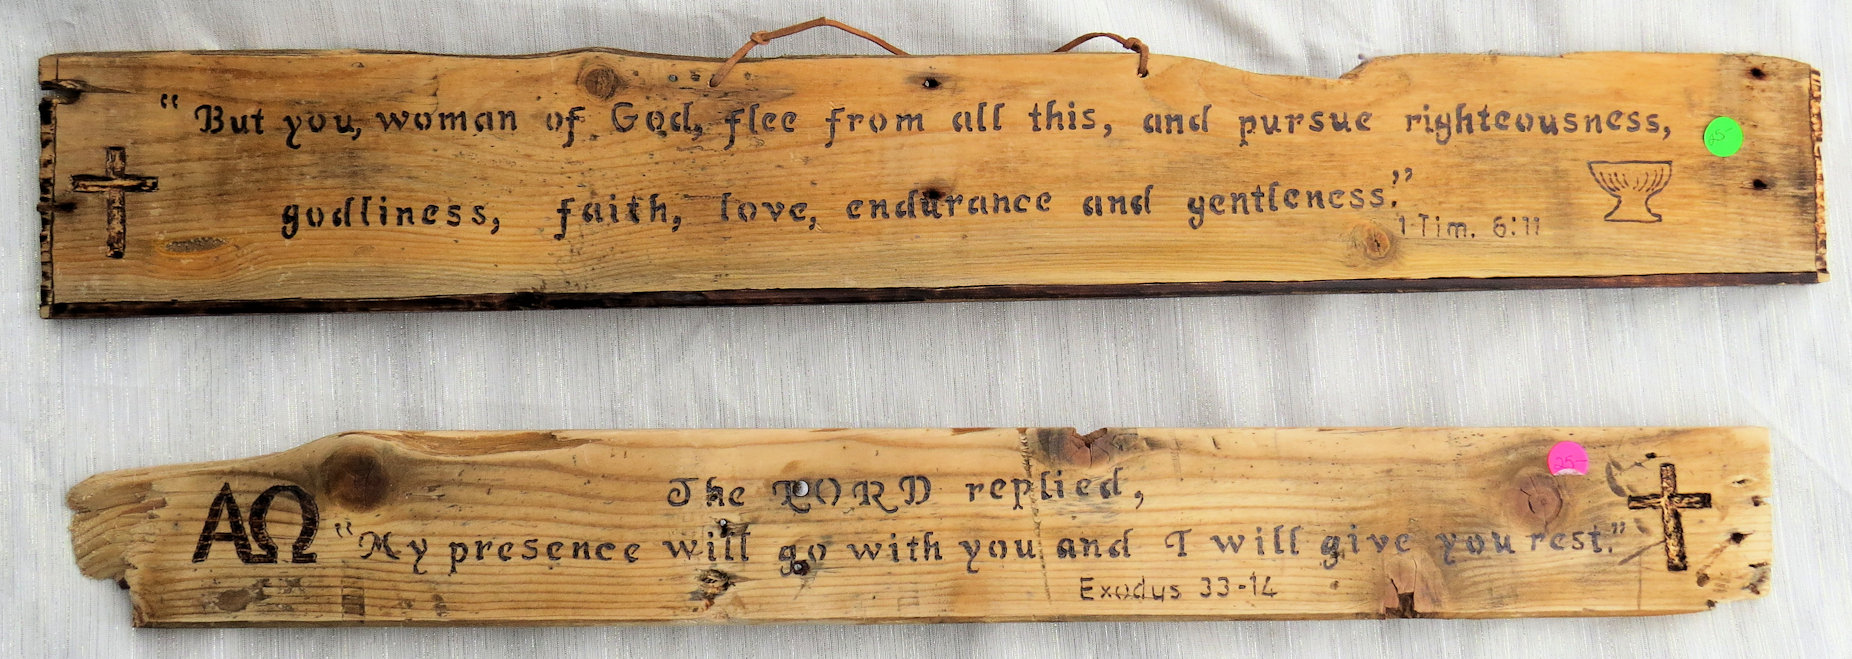 “But you, woman of God, flee from all this, and pursue righteousness,
godliness, faith, love, endurance and gentleness.”
1 Tim. 6:11
25-
25-
The LORD replied,
ΑΩ
“My presence will go with you and I will give you rest.”
Exodus 33-14